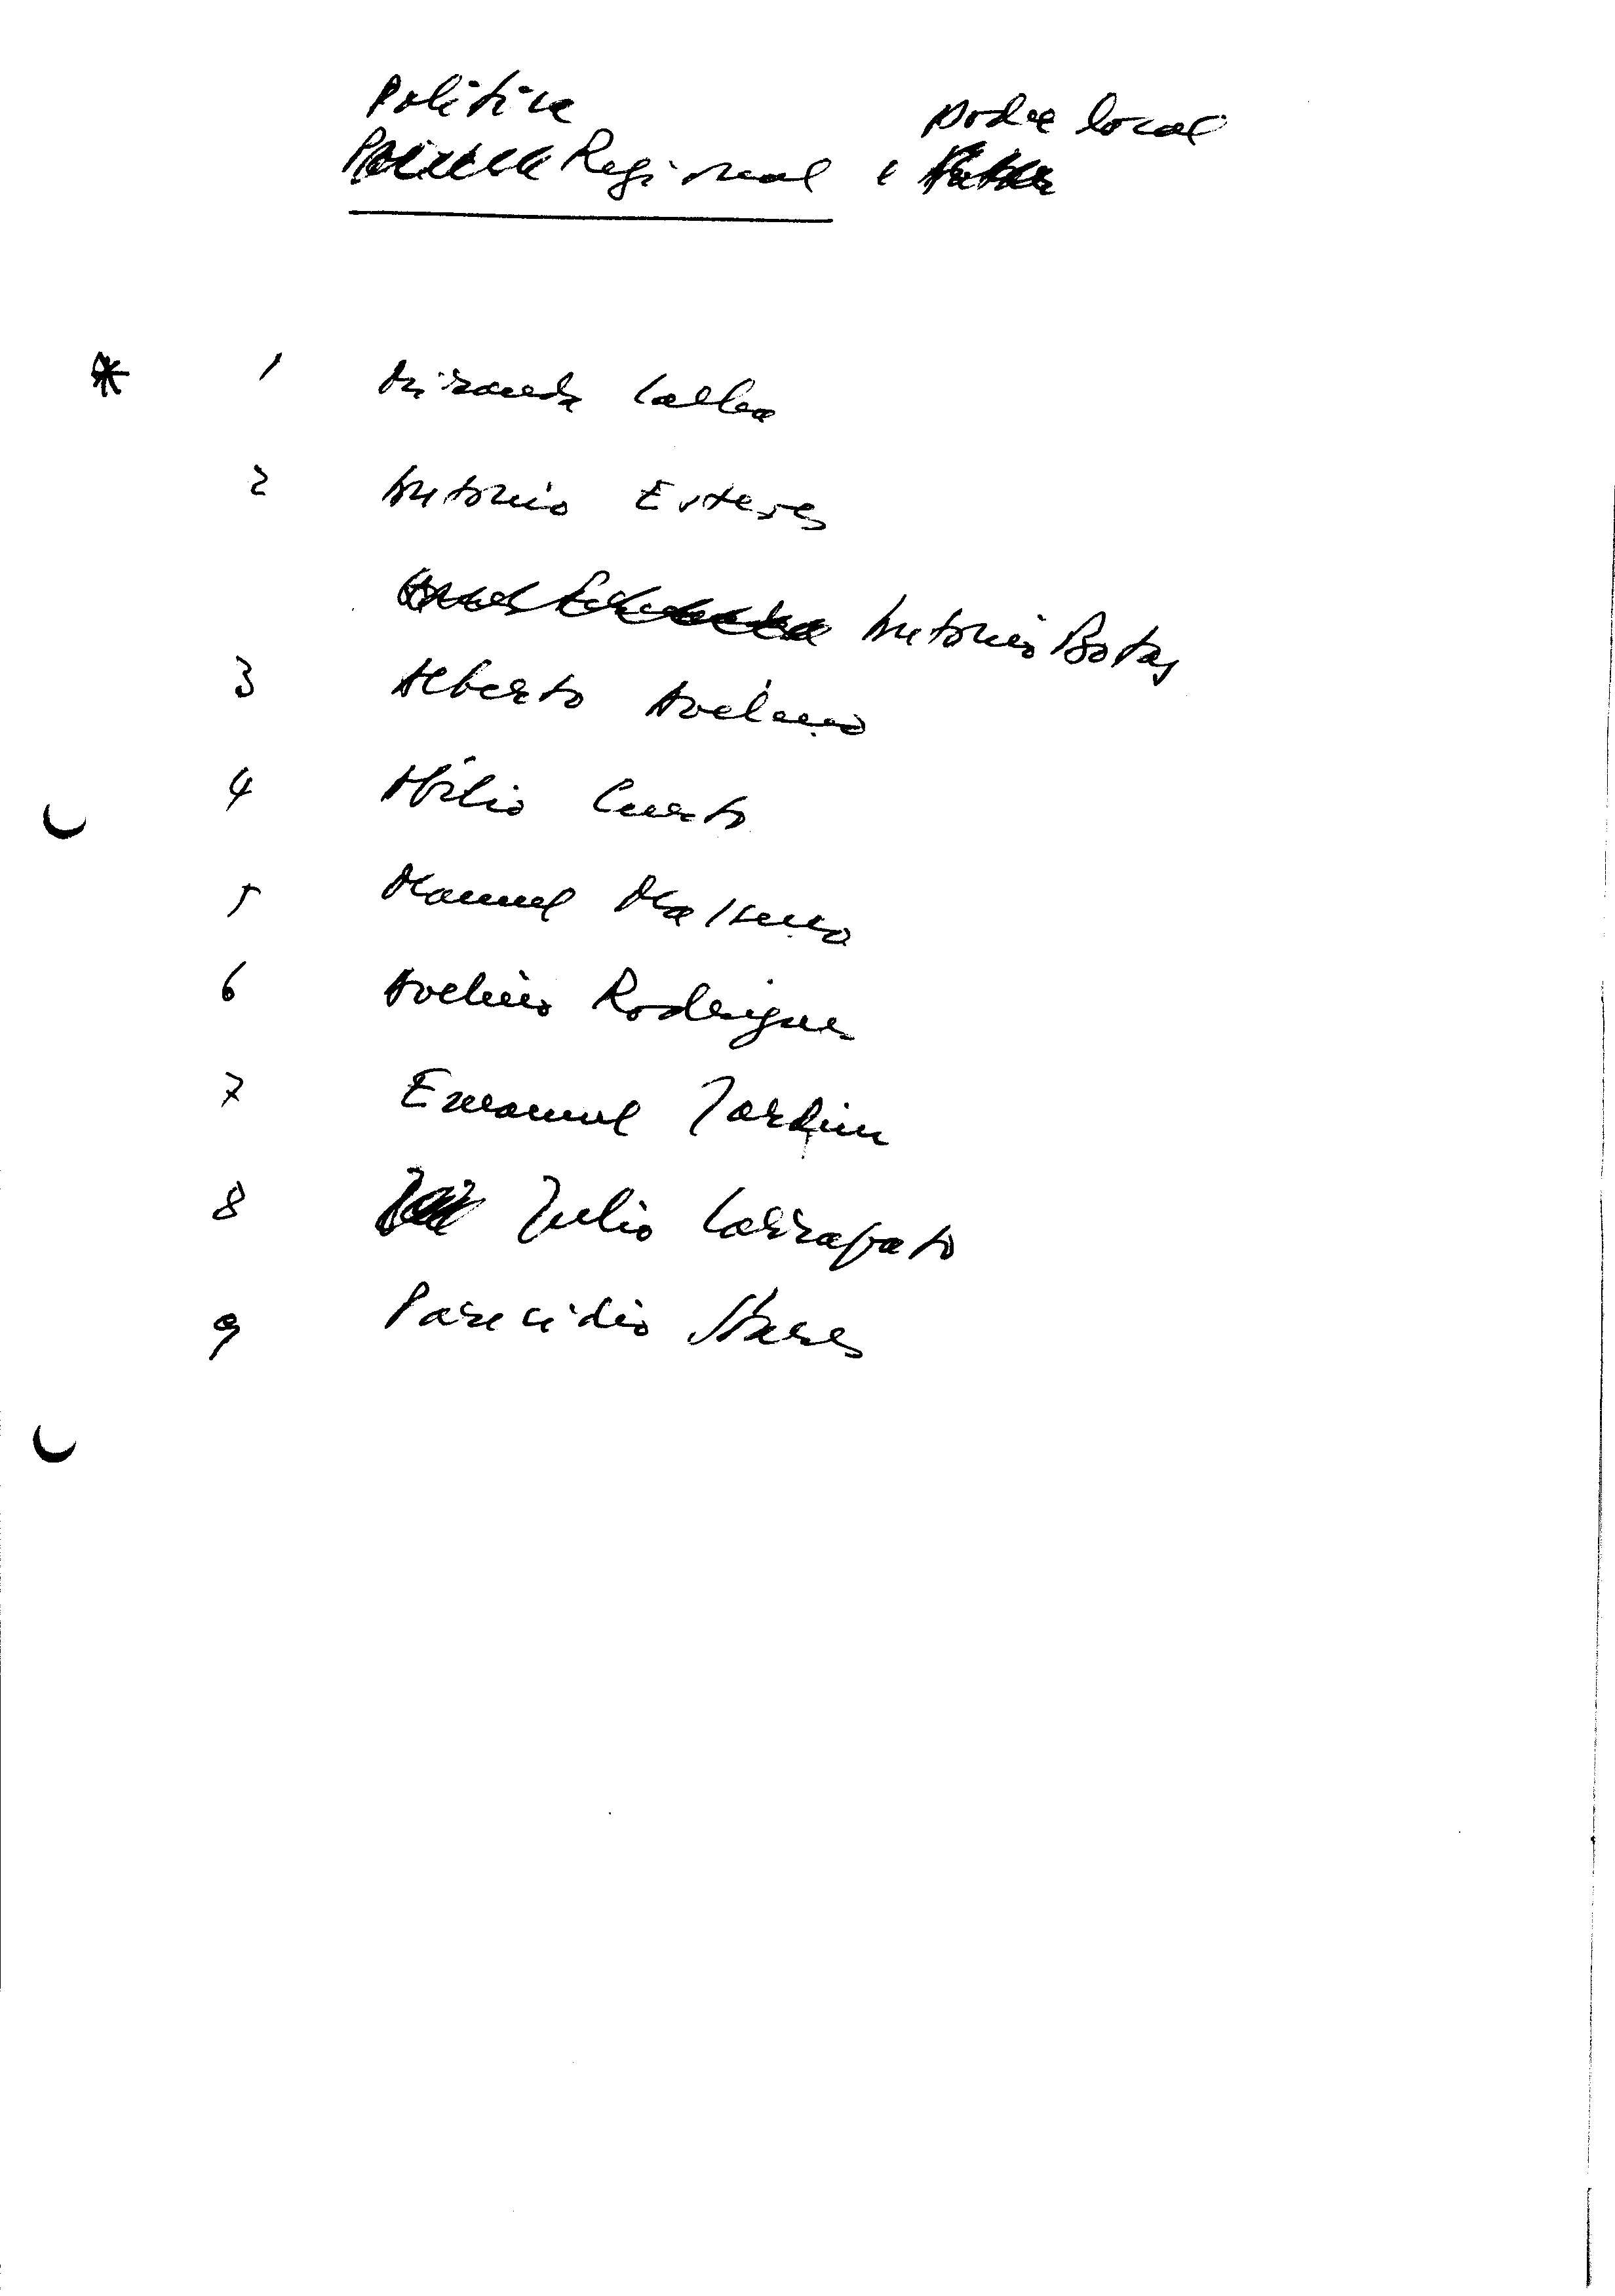 Politica
Regional e poder local
* 1 Miranda Calha
2 Antonio Esteves
Antonio Botas
3 Alberto Avelino
4 Abílio Curto
5 Manuel
6 Avelino Rodrigues
7 Emanuel Jardim
8 Julio Carrapato
9 Parcidio